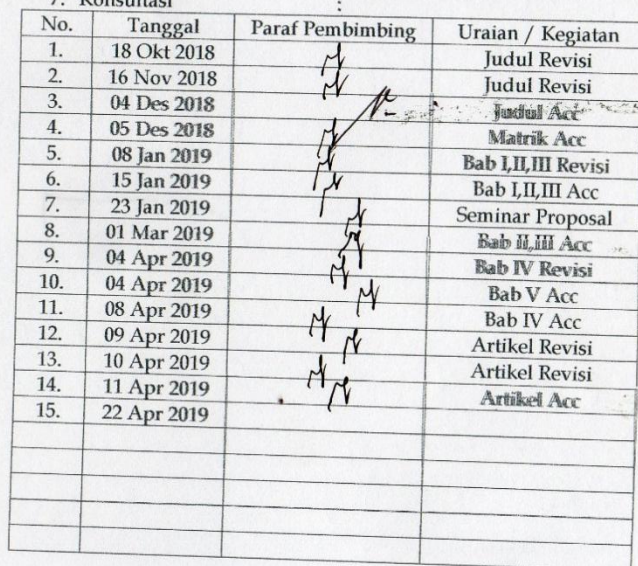 7. Konsultasi :
No. Tanggal Paraf Pembimbing Uraian / Kegiatan
1. 18 Okt 2018 Judul Revisi
2. 16 Nov 2018 Judul Revisi
3. 04 Des 2018 Judul Acc
4. 05 Des 2018 Matrik Acc
5. 08 Jan 2019 Bab I,II,III Revisi
6. 15 Jan 2019 Bab I,II,III Acc
7. 23 Jan 2019 Seminar Proposal
8. 01 Mar 2019 Bab II,III Acc
9. 04 Apr 2019 Bab IV Revisi
10. 04 Apr 2019 Bab V Acc
11. 08 Apr 2019 Bab IV Acc
12. 09 Apr 2019 Artikel Revisi
13. 10 Apr 2019 Artikel Revisi
14. 11 Apr 2019 Artikel Acc
15. 22 Apr 2019